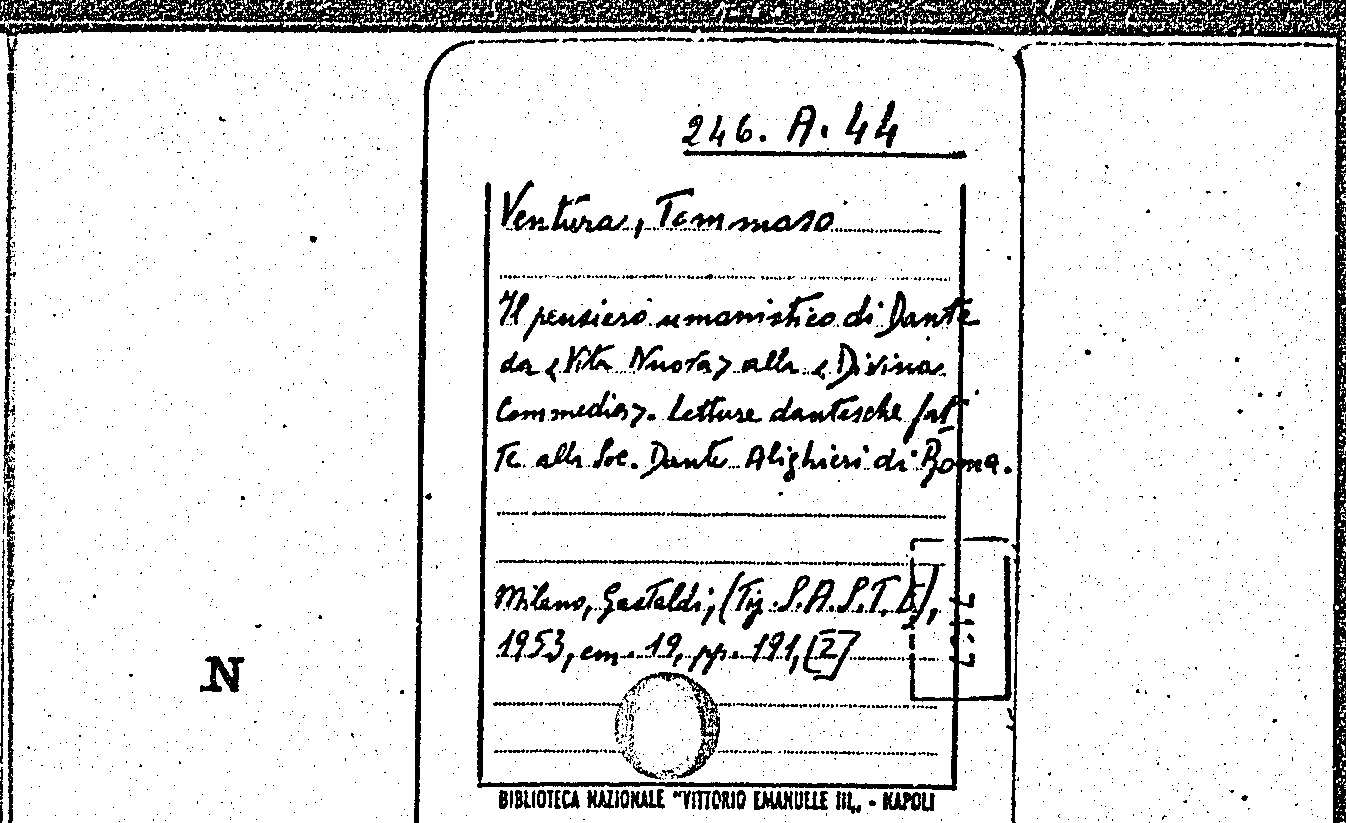 246. A. 44
Ventura, Tommaso
Il pensiero umanistico di Dante
da «Vita Nuova» alla «Divina
Commedia». Letture dantesche fat-
te alla Soc. Dante Alighieri di Roma.
Milano, Gastaldi, (Tip. S.A.S.T.E.),
1953, cm. 19, pp. 191, [2]
N
BIBLIOTECA NAZIONALE "VITTORIO EMANUELE III„ - NAPOLI